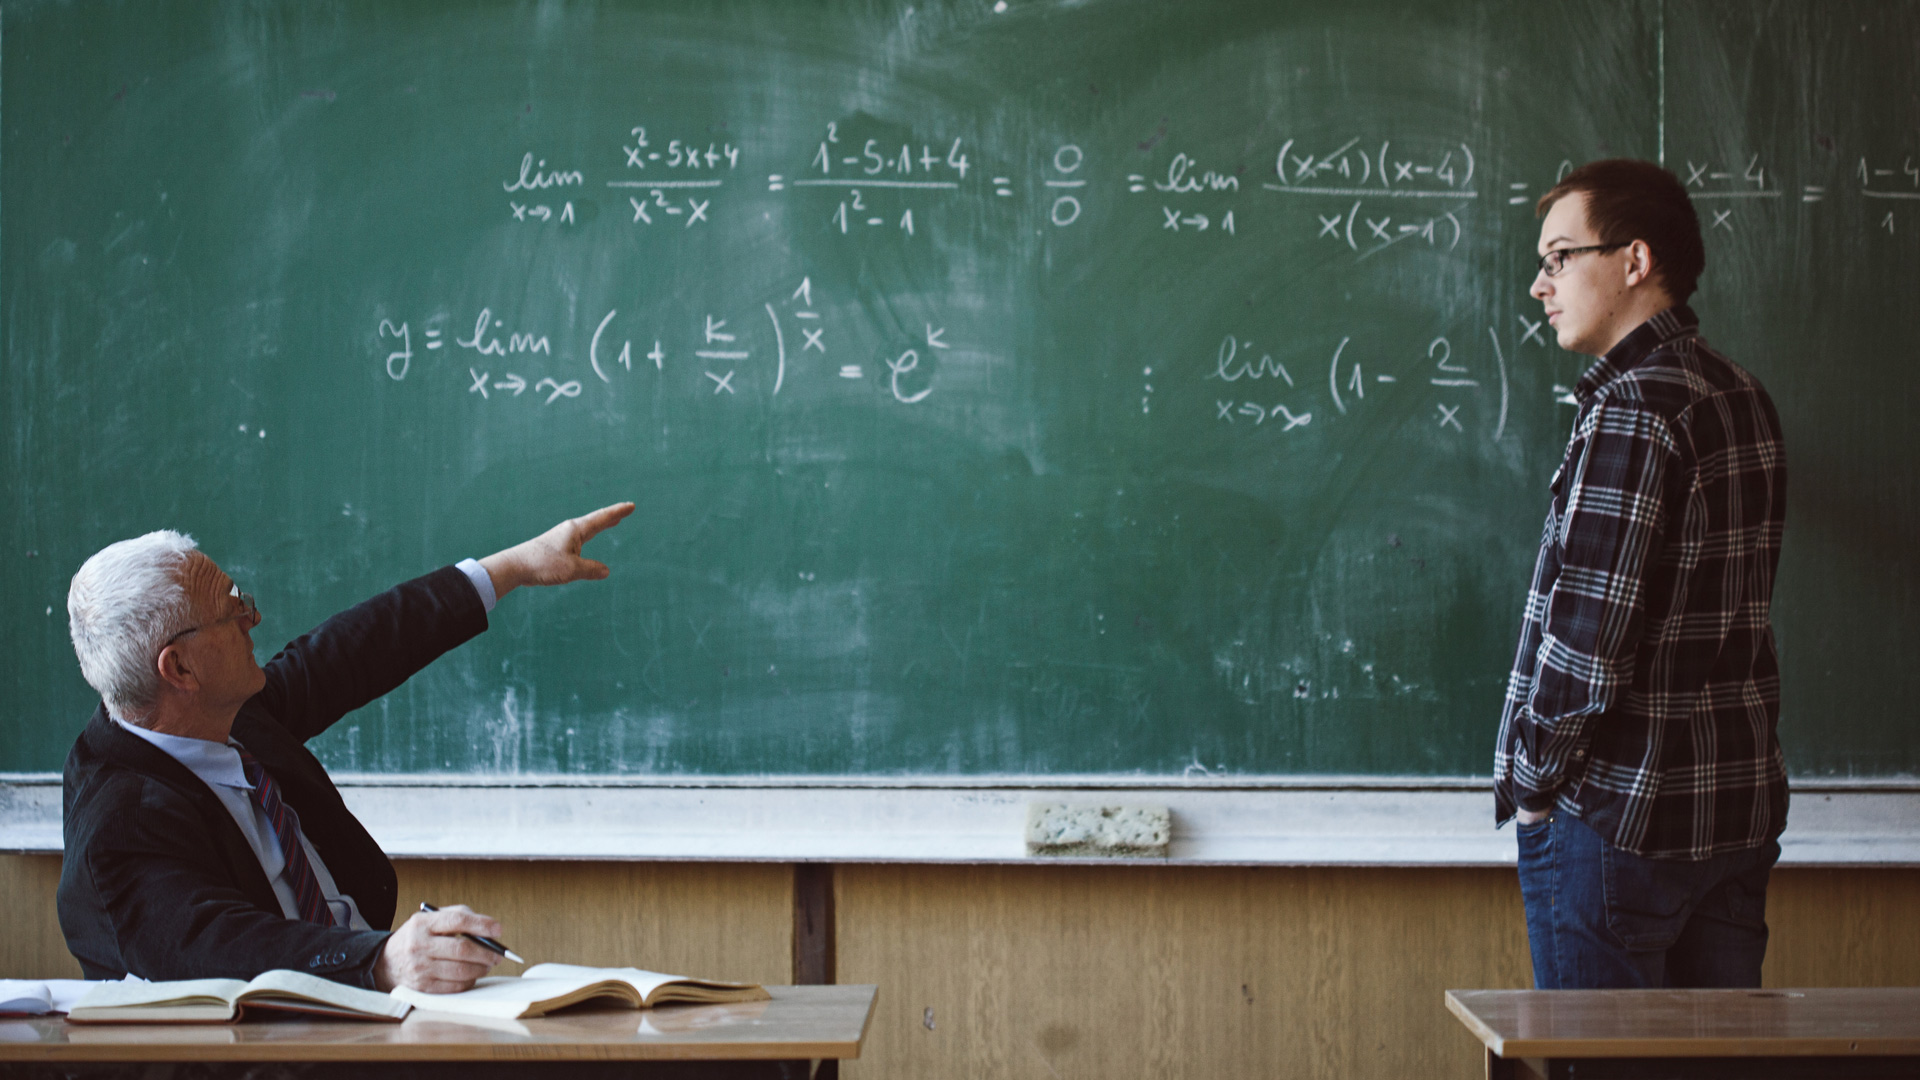 lim x→1 x²-5x+4 / x²-x = 1²-5·1+4 / 1²-1 = 0/0 = lim x→1 (x-1)(x-4) / x(x-1) = x-4 / x = 1-4 / 1
y = lim x→∞ (1 + k/x)^(1/x) = e^k ⋮ lim x→∞ (1 - 2/x)^x =